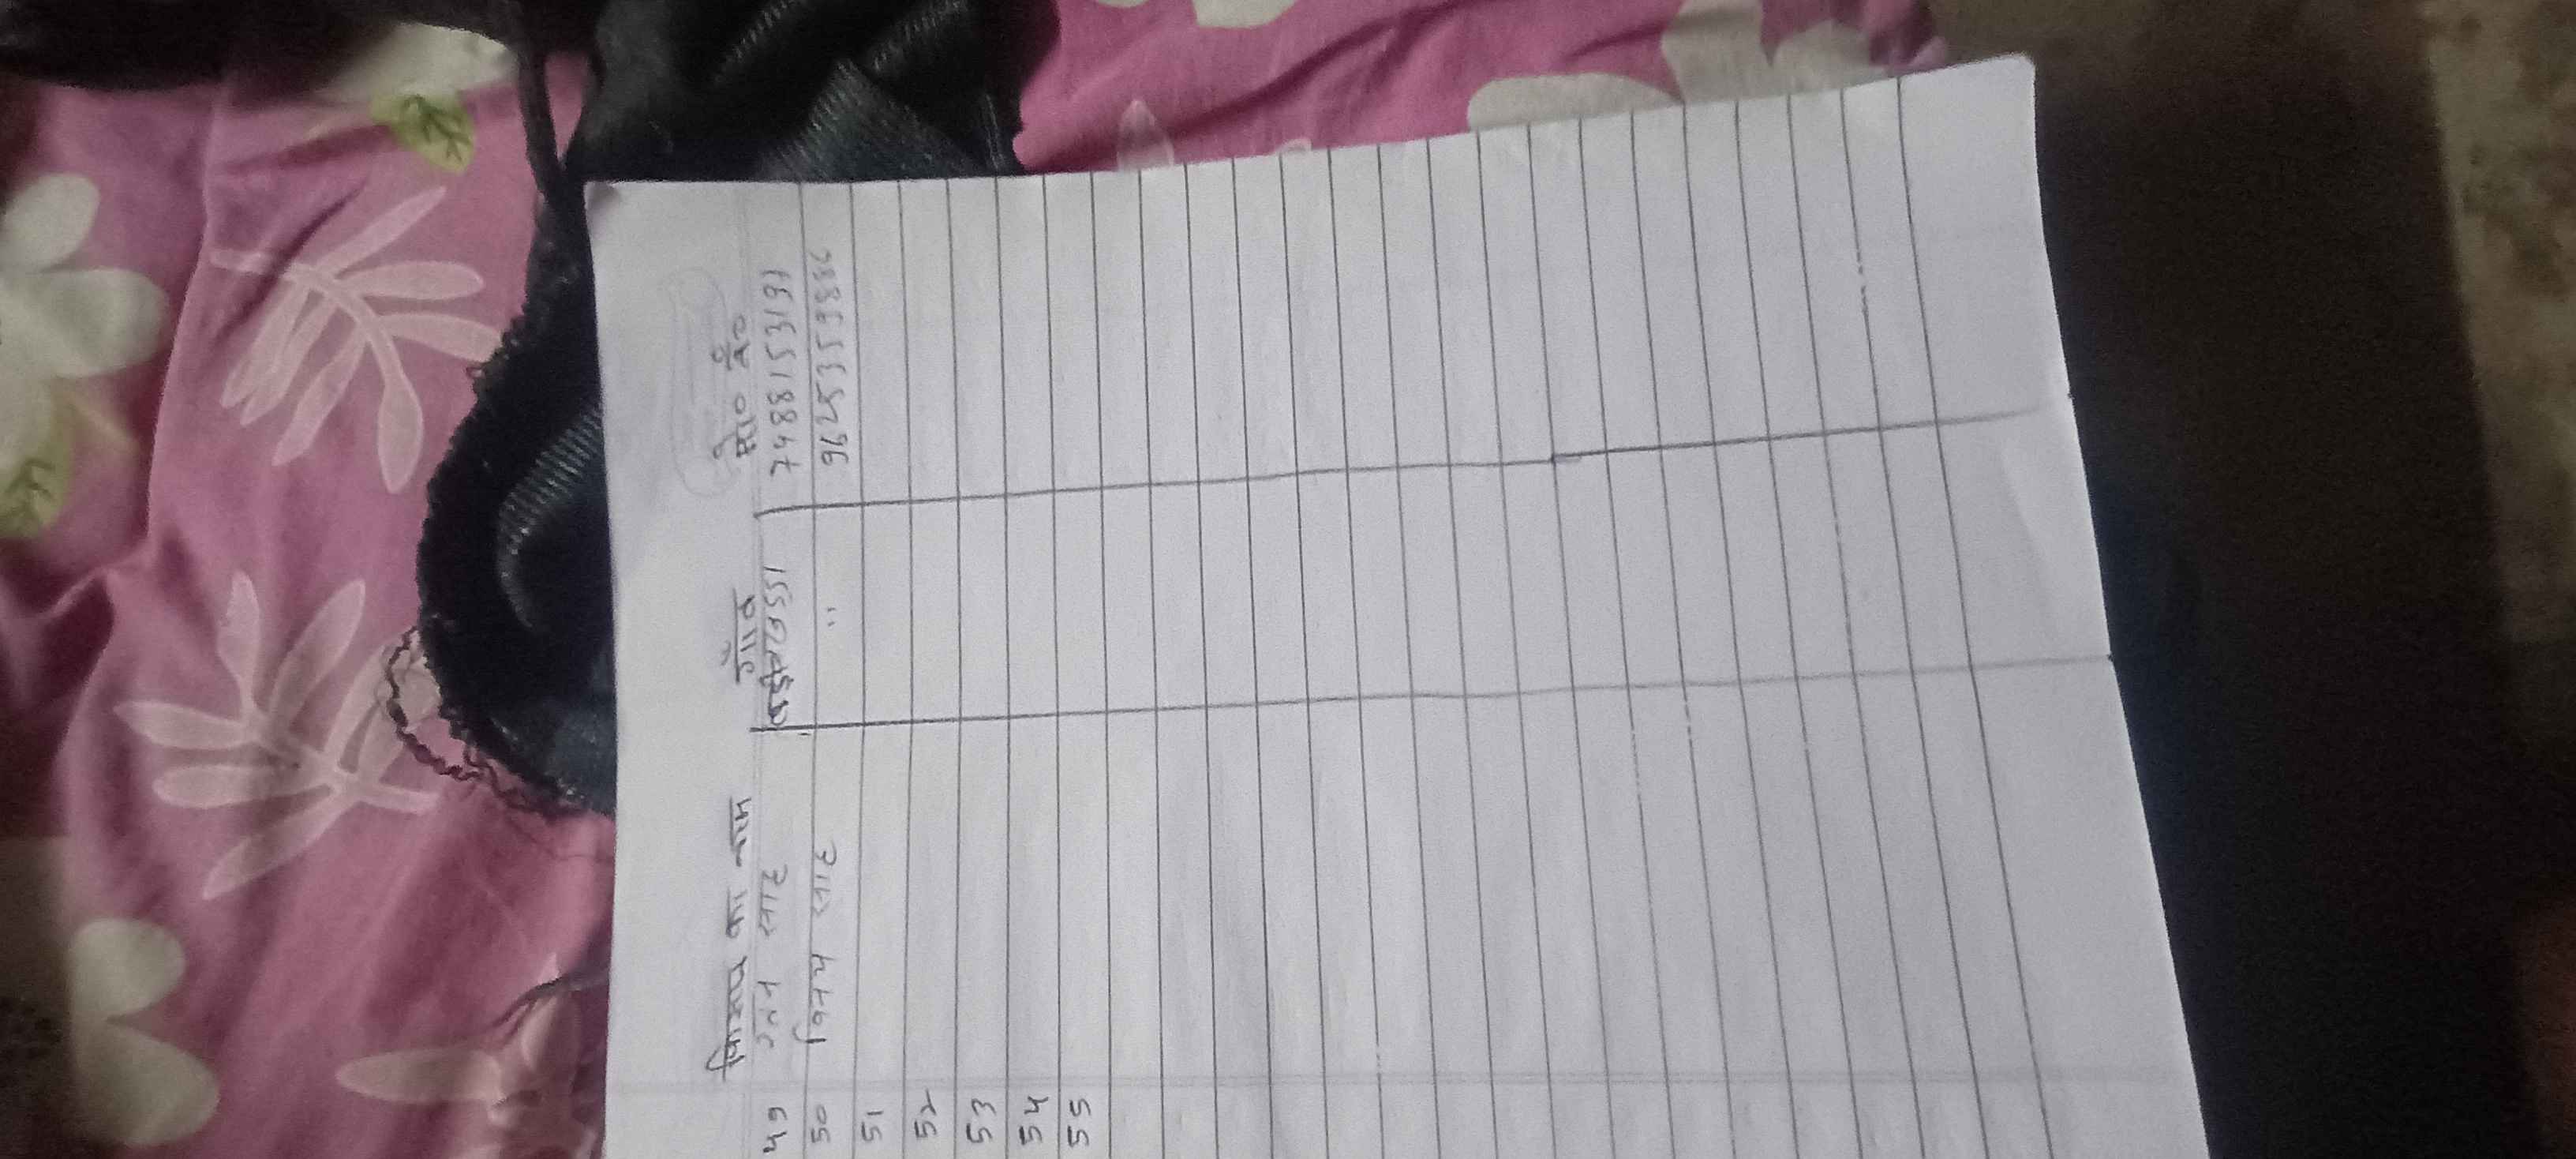 किसान का नाम गाँव मो० नं०
49 रतन साह बड़ेगउडा 7488153191
50 विनय साह " 9625359886
51
52
53
54
55